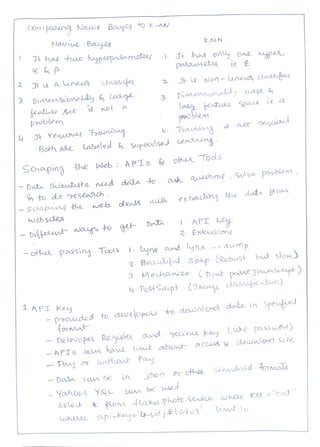 Comparing Naive Bayes to K-NN
Navive Bayes KNN
1. It has two hyperparameters 1. It has only one hyper
α & β parameter ie k
2 It is a linear classifier 2. It is Non-linear classifier
3 Dimensionality & large 3. Dimensionality, use &
feature set is not a large feature space is a
problem problem.
4 It requires Training 4. Training is not required
Both are labeled & Supervised Learning.
Scraping the Web: APIs & other Tools
- Data Scientists need data to ask question, solve problem,
& to do research.
- Scraping the web deals with extracting the data from
websites
- Different ways to get Data 1. API key
2. Extensions
- other parsing Tools 1. lynx and lynx --dump
2. Beautiful Soap (Robust but slow)
3. Mechanize (Dont parse Javascript)
4. PostScipt (Image classification)
1. API Key
- provided to developers to download data in specified
format
- Delevoper Register and recieve key (like password)
- APIs can have limit about access & download size
- Pay or without Pay
- Data can be in json or other standard formats
- Yahoos YQL can be used
select * from flickr.photo.search where text = "Cat"
where api-key = limit 10